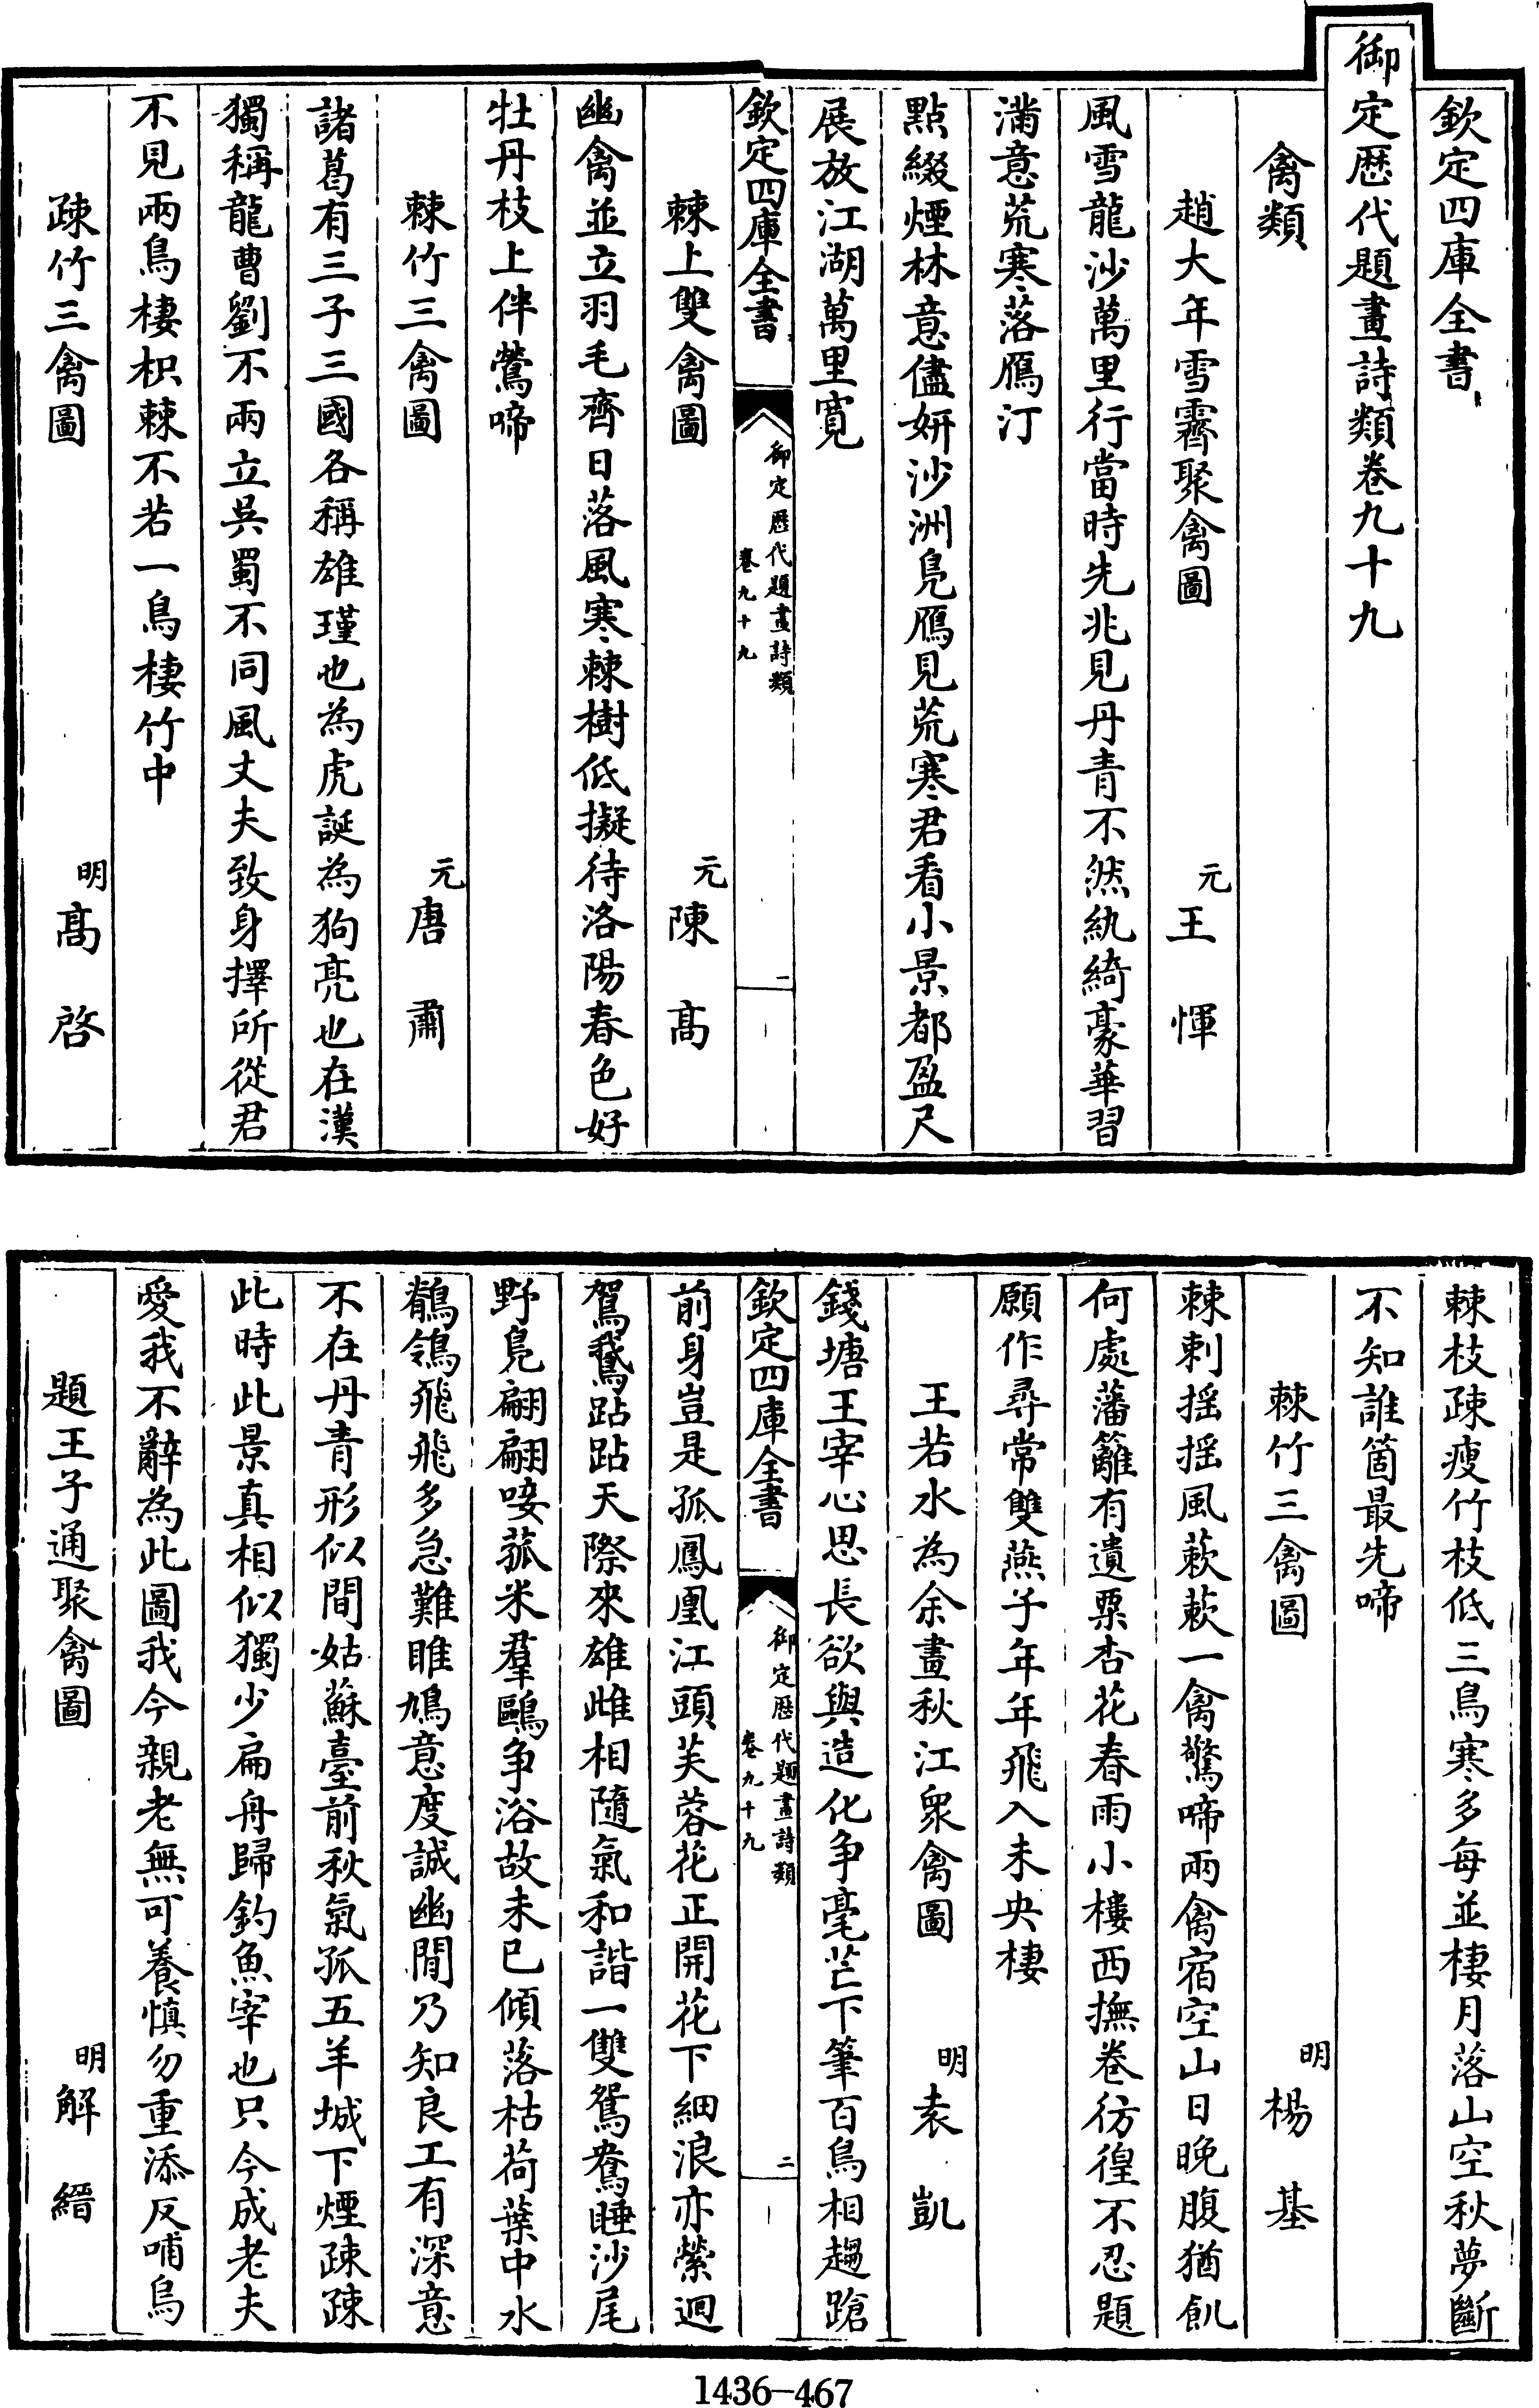 欽定四庫全書
御定歴代題畫詩類卷九十九
禽類
趙大年雪霽聚禽圖 元 王惲
風雪龍沙萬里行當時先兆見丹青不然紈綺豪華習
滿意荒寒落鴈汀
點綴煙林意儘妍沙洲鳧鴈見荒寒君看小景都盈尺
展放江湖萬里寛
欽定四庫全書 御定歴代題畫詩類 卷九十九 一
棘上雙禽圖 元 陳高
幽禽並立羽毛齊日落風寒棘樹低擬待洛陽春色好
牡丹枝上伴鶯啼
棘竹三禽圖 元 唐肅
諸葛有三子三國各稱雄瑾也為虎誕為狗亮也在漢
獨稱龍曹劉不兩立吳蜀不同風丈夫致身擇所從君
不見兩鳥棲枳棘不若一鳥棲竹中
疎竹三禽圖 明 高啓
棘枝疎瘦竹枝低三鳥寒多每並棲月落山空秋夢斷
不知誰箇最先啼
棘竹三禽圖 明 楊基
棘刺揺揺風蔌蔌一禽驚啼兩禽宿空山日晚腹猶飢
何處藩籬有遺粟杏花春雨小樓西撫卷彷徨不忍題
願作尋常雙燕子年年飛入未央棲
王若水為余畫秋江衆禽圖 明 袁凱
錢塘王宰心思長欲與造化争毫芒下筆百鳥相趨蹌
欽定四庫全書 御定歴代題畫詩類 卷九十九 二
前身豈是孤鳳凰江頭芙蓉花正開花下細浪亦縈迴
駕鵞跕跕天際來雄雌相隨氣和諧一雙鴛鴦睡沙尾
野鳧翩翩唼菰米羣鷗争浴故未已傾落枯荷葉中水
鶺鴒飛飛多急難睢鳩意度誠幽閒乃知良工有深意
不在丹青形似間姑蘇臺前秋氣孤五羊城下煙疎疎
此時此景真相似獨少扁舟歸釣魚宰也只今成老夫
愛我不辭為此圖我今親老無可養慎勿重添反哺烏
題王子通聚禽圖 明 解縉
1436-467